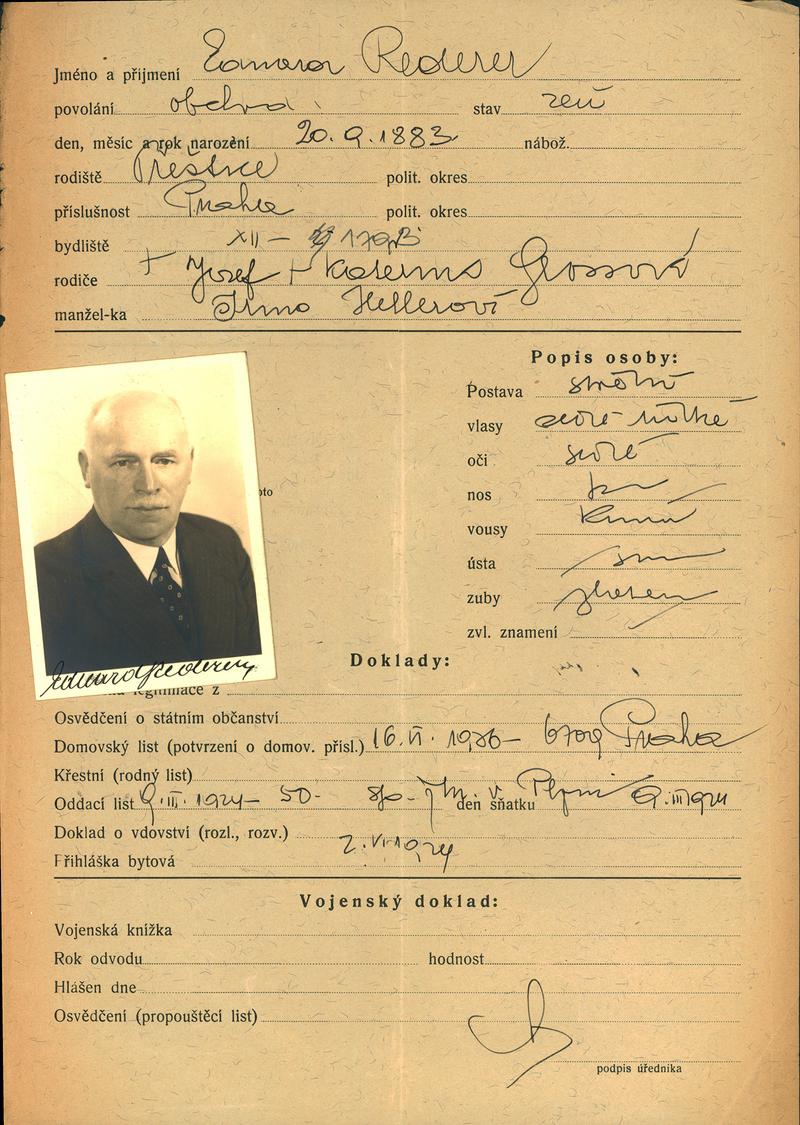 Jméno a příjmení Eduard Rederer
povolání obchod stav žen
den, měsíc a rok narození 20. 9. 1883 nábož.
rodiště Přeštice polit. okres
příslušnost Praha polit. okres
bydliště XII - 179
rodiče + Josef + Kateřina Grossová
manžel-ka Irma Hellerová
Popis osoby:
Postava střední
vlasy šedé řídké
oči šedé
oto
nos
vousy
ústa
zuby
zvl. znamení
Doklady:
Eduard Rederer
legitimace z
Osvědčení o státním občanství
Domovský list (potvrzení o domov. přísl.) 16. VI. 1926 - Praha
Křestní (rodný list)
Oddací list 9. III. 1924 - 50 - v Plzni den sňatku 9. III 1924
Doklad o vdovství (rozl., rozv.)
Přihláška bytová 2. VI 1924
Vojenský doklad:
Vojenská knížka
Rok odvodu hodnost
Hlášen dne
Osvědčení (propouštěcí list)
podpis úředníka